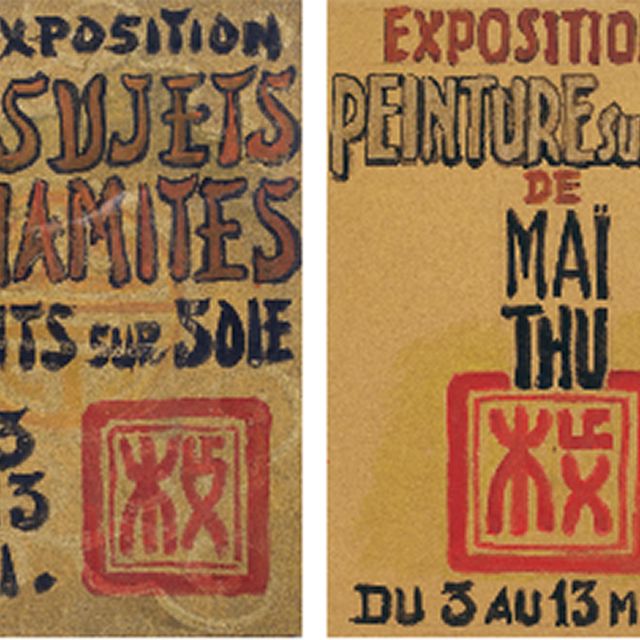 XPOSITION
SUJETS
AMITES
TS SUR SOIE
3
3
EXPOSITIO
PEINTURE SU
DE
MAÏ
THU
DU 3 AU 13 M